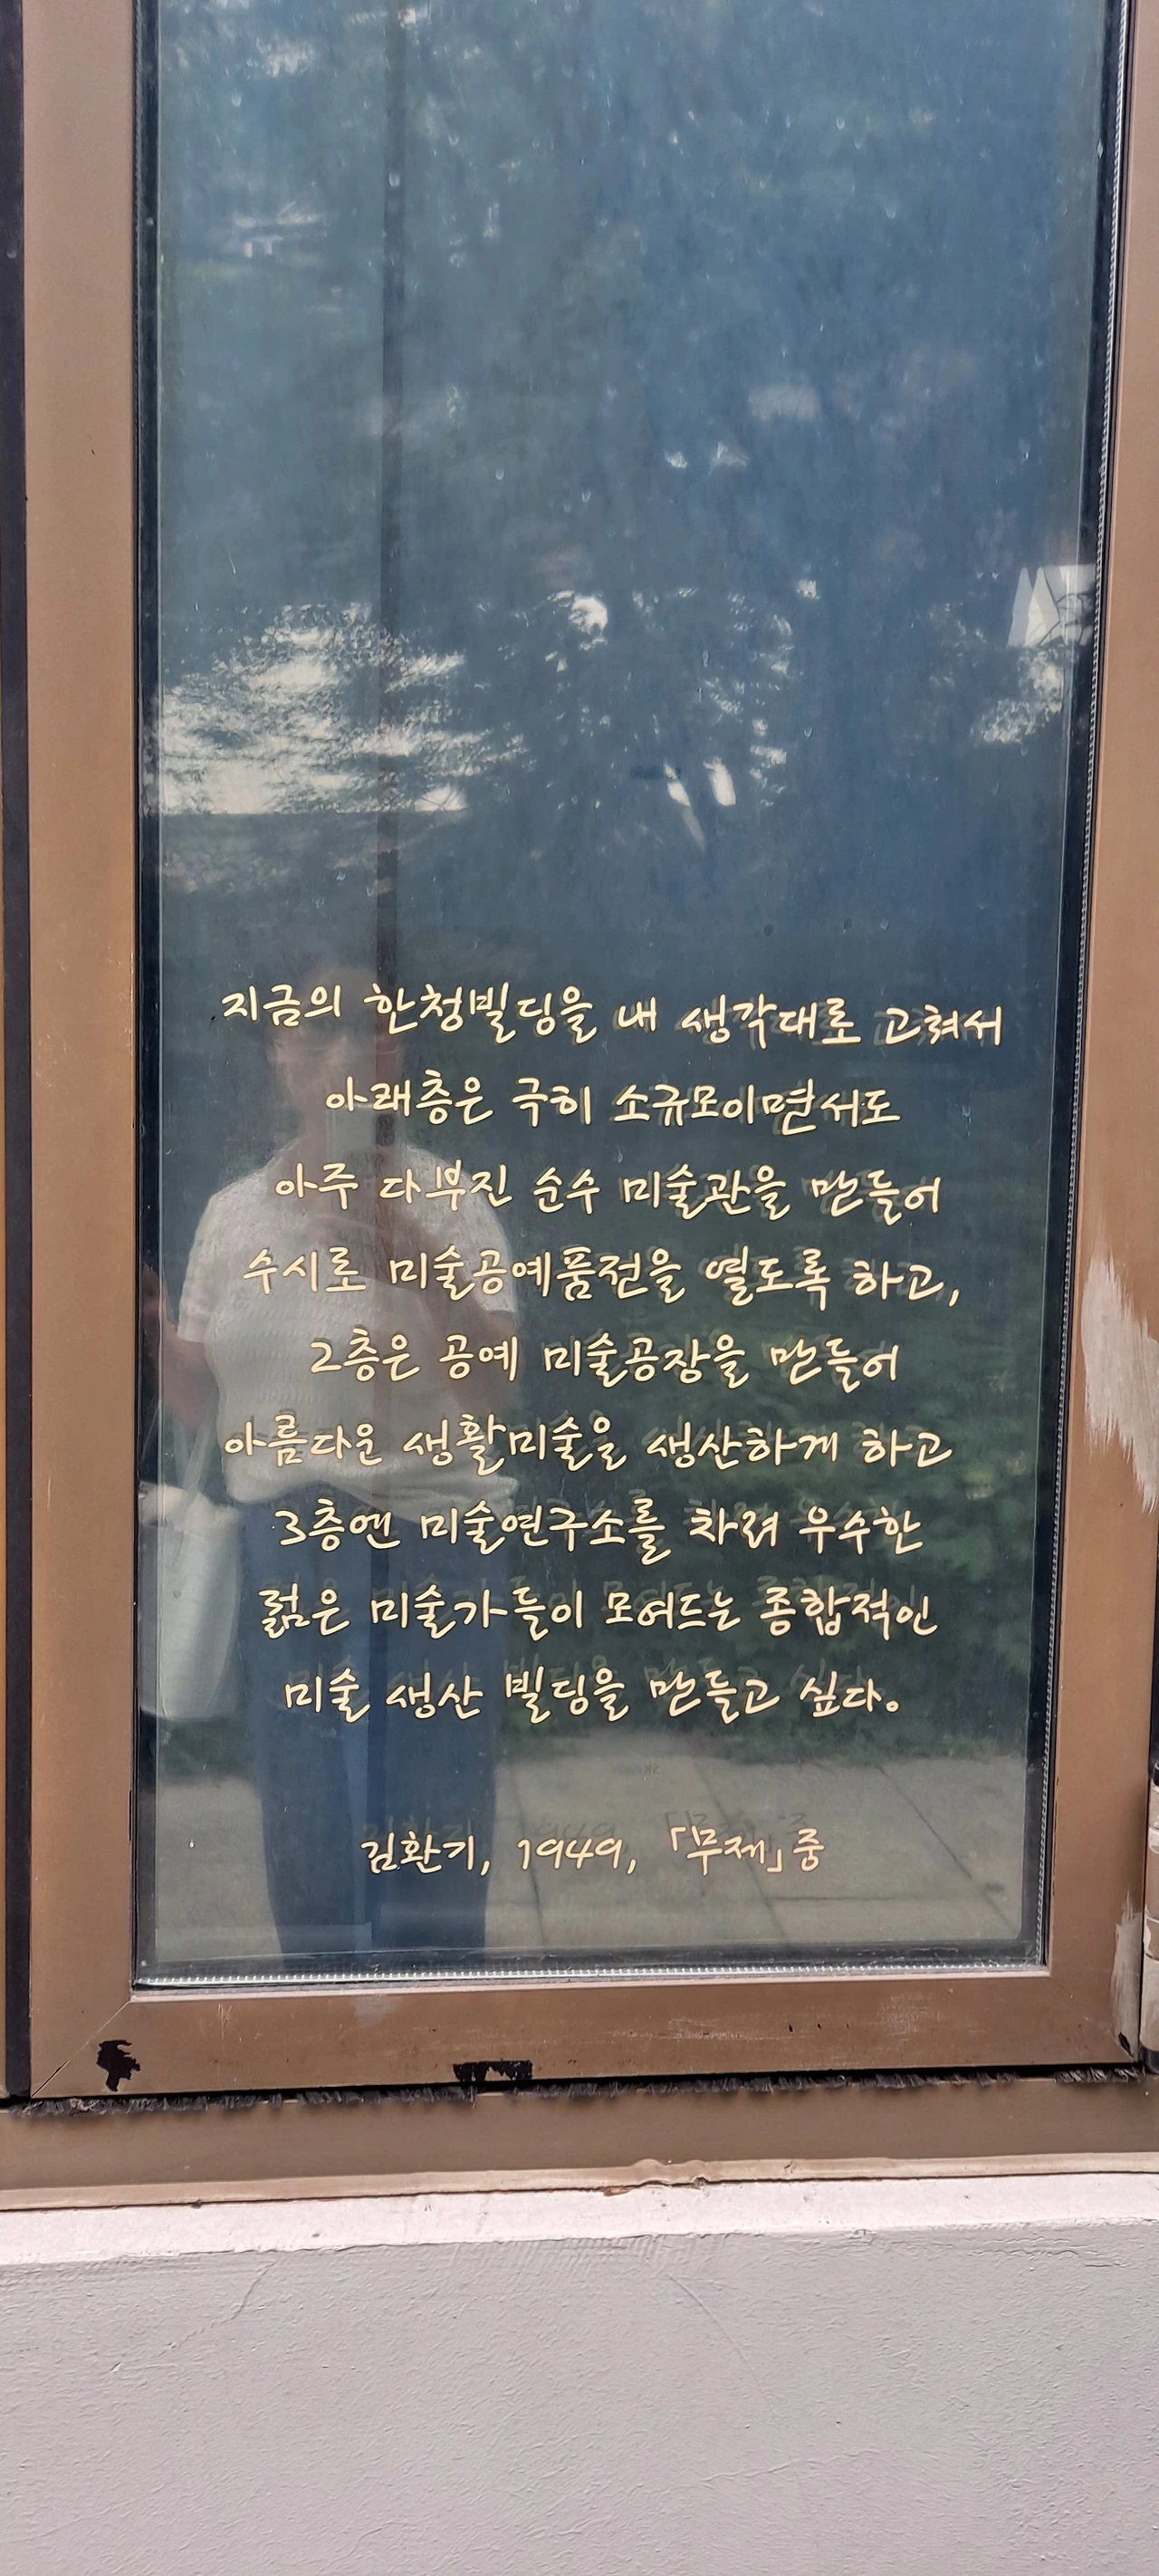 지금의 한청빌딩을 내 생각대로 고쳐서
아래층은 극히 소규모이면서도
아주 다부진 순수 미술관을 만들어
수시로 미술공예품전을 열도록 하고,
2층은 공예 미술공장을 만들어
아름다운 생활미술을 생산하게 하고
3층엔 미술연구소를 차려 우수한
젊은 미술가들이 모여드는 종합적인
미술 생산 빌딩을 만들고 싶다.
김환기, 1949, 「무제」중